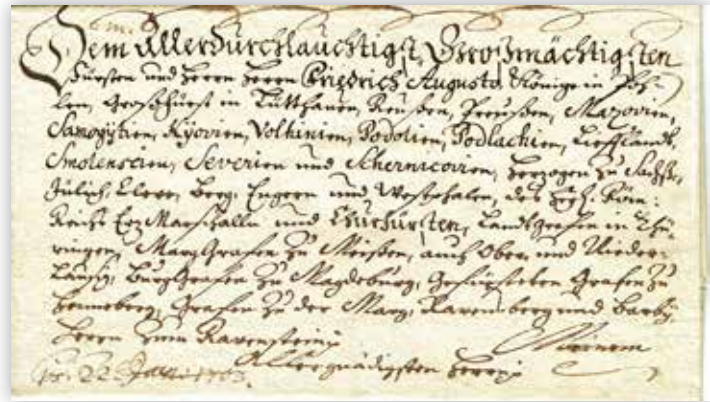 Dem Allerdurchlauchtigst, Großmächtigsten
Fürsten und Herrn Herrn Friedrich Augusto, Könige in Poh-
len, Großfürst in Litthauen, Reußen, Preußen, Mazovien,
Samogitien, Kyovien, Volhinien, Podolien, Podlachien, Lieffland,
Smolenscien, Severien und Schernicovien, Herzogen zu Sachßen,
Jülich, Cleve, Berg, Engern und Westphalen, des Heyl. Röm:
Reichs Erz Marschalln und Churfürsten, Landgrafen in Thü-
ringen, Marggrafen zu Meißen, auch Ober- und Nieder-
Lausiz, Burggrafen zu Magdeburg, Gefürsteten Grafen zu
Henneberg, Grafen zu der Marg, Ravensberg und Barby,
Herrn zum Ravenstein
Meinem
Allergnädigsten Herrn
22. Jan: 1703.